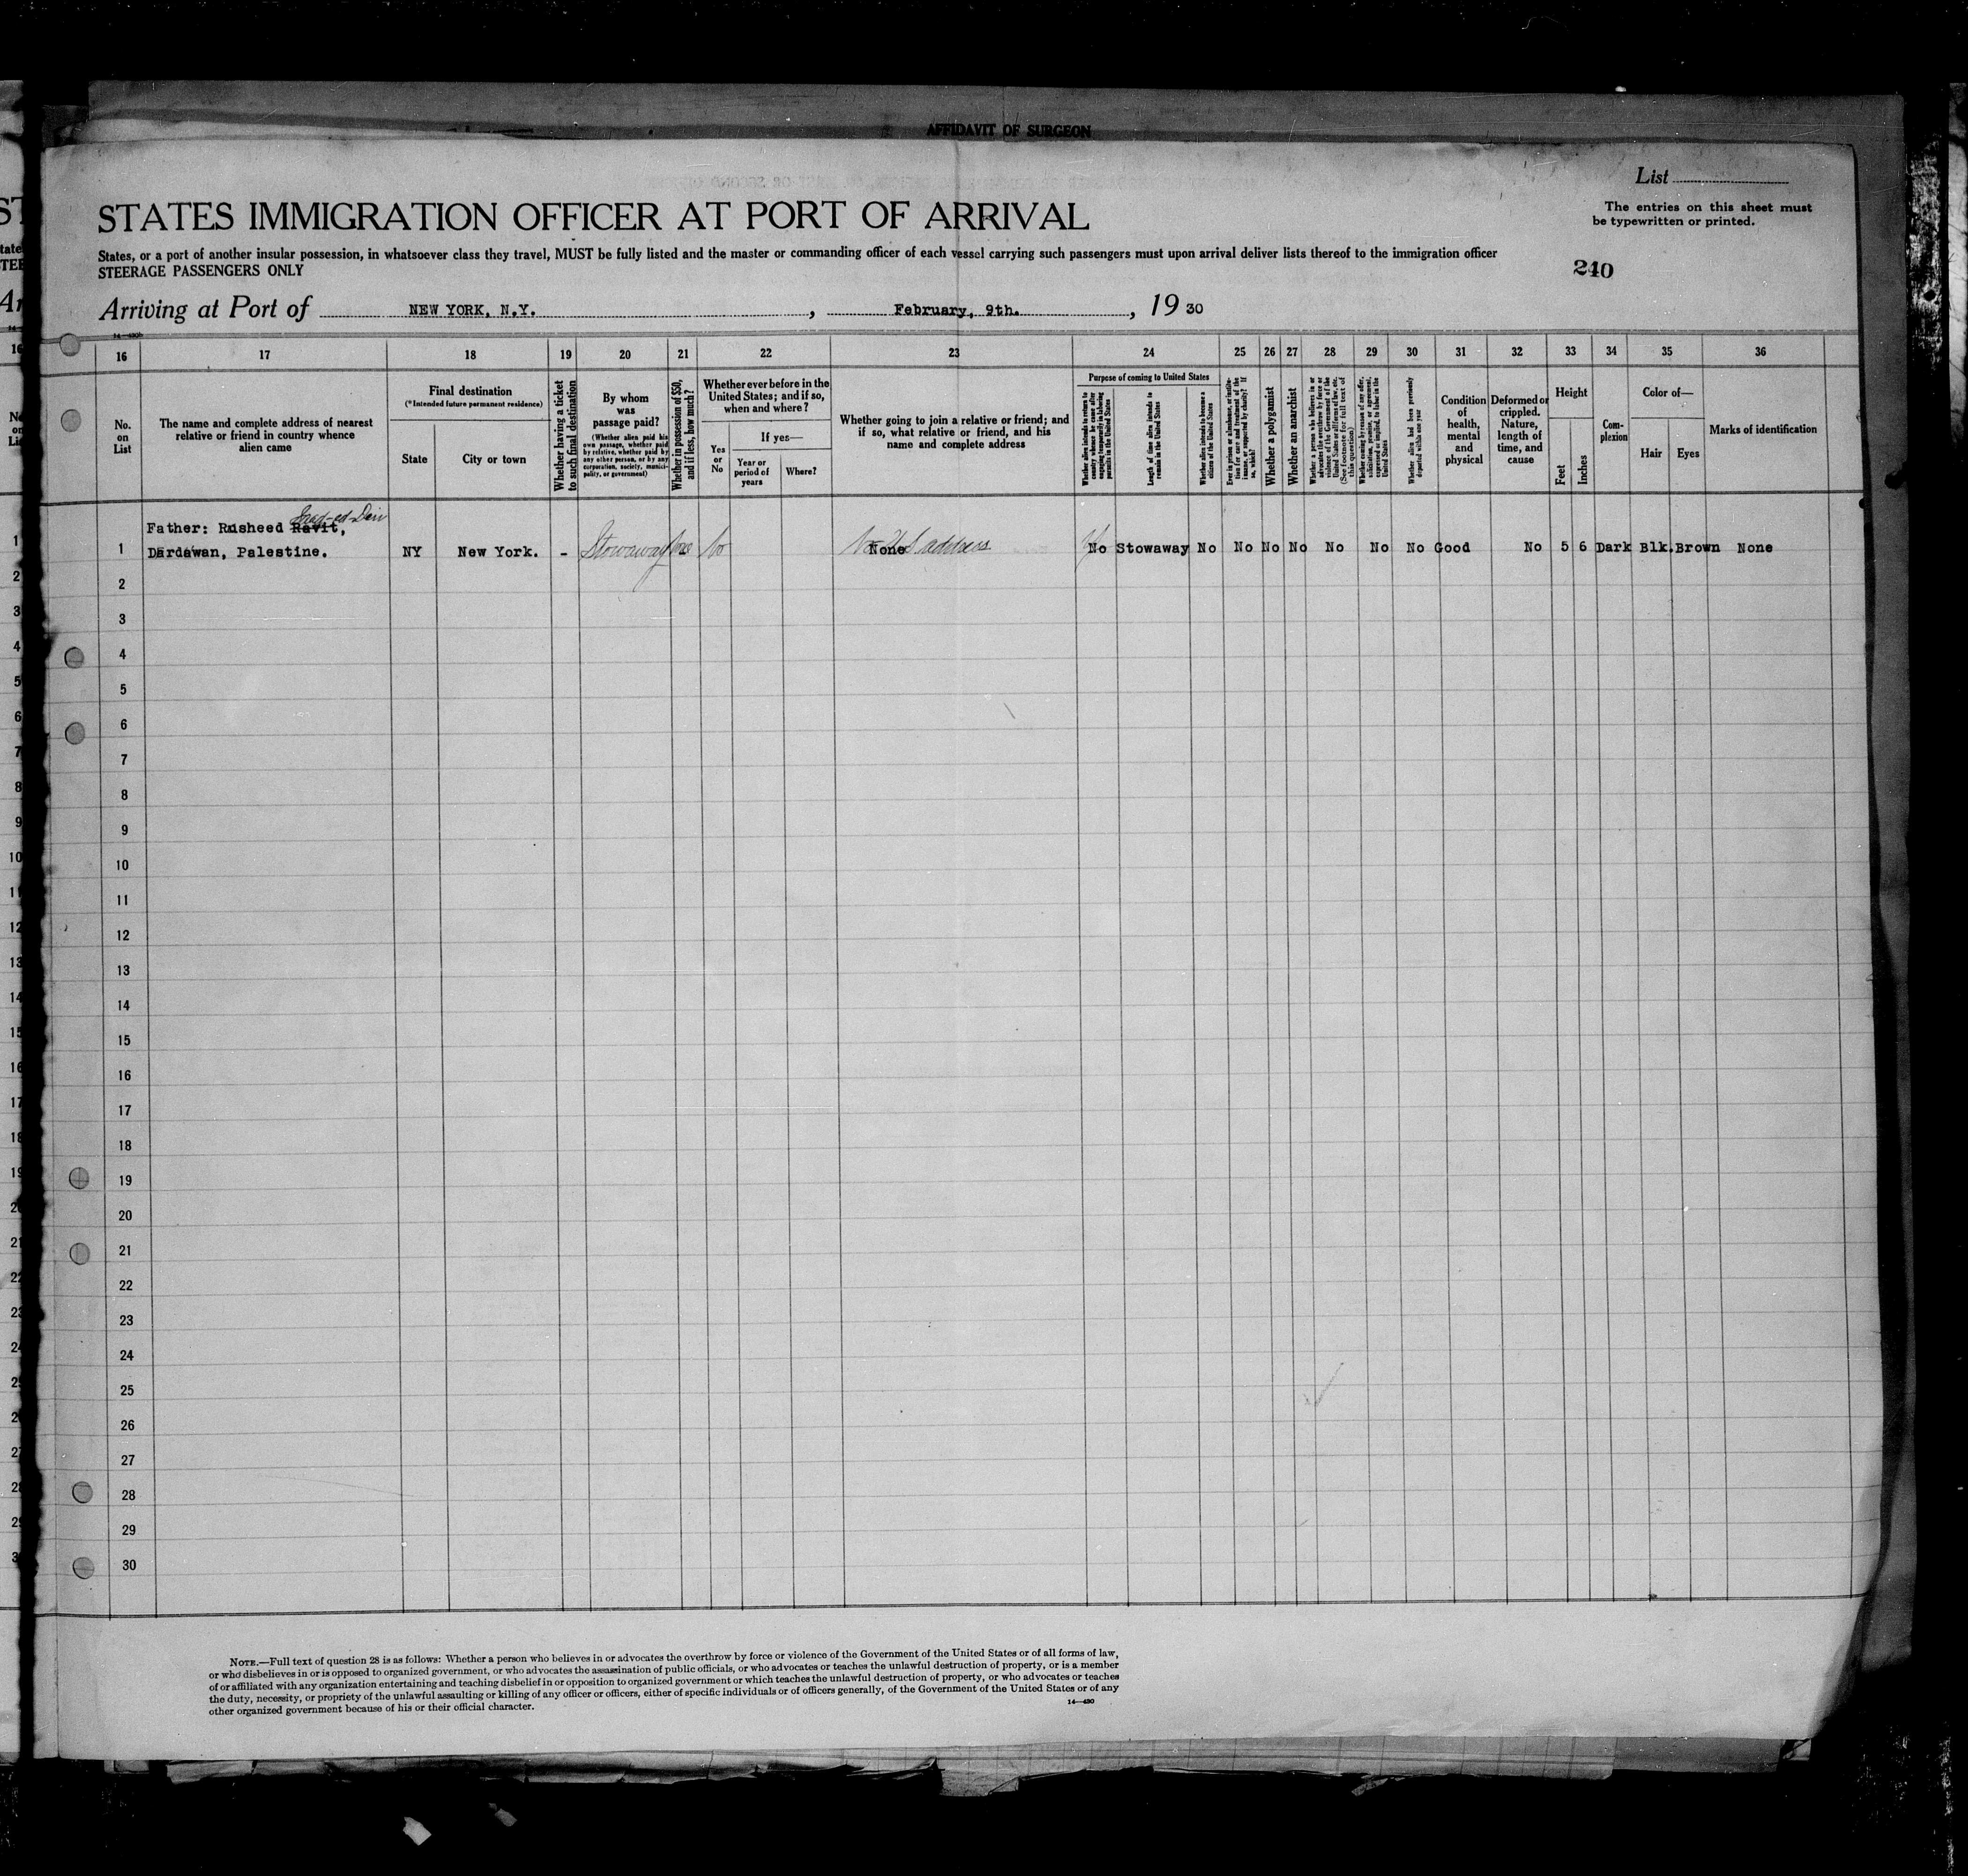 AFFIDAVIT OF SURGEON
List
STATES IMMIGRATION OFFICER AT PORT OF ARRIVAL
The entries on this sheet must
be typewritten or printed.
States, or a port of another insular possession, in whatsoever class they travel, MUST be fully listed and the master or commanding officer of each vessel carrying such passengers must upon arrival deliver lists thereof to the immigration officer
STEERAGE PASSENGERS ONLY
240
Arriving at Port of NEW YORK, N.Y. , February, 9th. , 19 30
16 17 18 19 20 21 22 23 24 25 26 27 28 29 30 31 32 33 34 35 36
No.
on
List
The name and complete address of nearest
relative or friend in country whence
alien came
Final destination
(*Intended future permanent residence)
State
City or town
Whether having a ticket
to such final destination
By whom
was
passage paid?
(Whether alien paid his
own passage, whether paid
by relative, whether paid by
any other person, or by any
corporation, society, munici-
pality, or government)
Whether in possession of $50,
and if less, how much?
Whether ever before in the
United States; and if so,
when and where?
Yes
or
No
If yes—
Year or
period of
years
Where?
Whether going to join a relative or friend; and
if so, what relative or friend, and his
name and complete address
Purpose of coming to United States
Whether alien intends to return to
country whence he came after
engaging temporarily in laboring
pursuits in the United States
Length of time alien intends to
remain in the United States
Whether alien intends to become a
citizen of the United States
Ever in prison or almshouse, or institu-
tion for care and treatment of the
insane, or supported by charity? If
so, which?
Whether a polygamist
Whether an anarchist
Whether a person who believes in or
advocates the overthrow by force or
violence of the Government of the
United States or all forms of law, etc.
(See footnote for full text of
this question)
Whether coming by reason of any offer,
solicitation, promise, or agreement,
expressed or implied, to labor in the
United States
Whether alien had been previously
deported within one year
Condition
of
health,
mental
and
physical
Deformed or
crippled.
Nature,
length of
time, and
cause
Height
Feet
Inches
Com-
plexion
Color of—
Hair
Eyes
Marks of identification
Father: Rusheed Ravit,
1 Dardawan, Palestine. NY New York. - Stowaway No No None No U S address No Stowaway No No No No No No No Good No 5 6 Dark Blk. Brown None
2
3
4
5
6
7
8
9
10
11
12
13
14
15
16
17
18
19
20
21
22
23
24
25
26
27
28
29
30
NOTE.—Full text of question 28 is as follows: Whether a person who believes in or advocates the overthrow by force or violence of the Government of the United States or of all forms of law,
or who disbelieves in or is opposed to organized government, or who advocates the assassination of public officials, or who advocates or teaches the unlawful destruction of property, or is a member
of or affiliated with any organization entertaining and teaching disbelief in or opposition to organized government or which teaches the unlawful destruction of property, or who advocates or teaches
the duty, necessity, or propriety of the unlawful assaulting or killing of any officer or officers, either of specific individuals or of officers generally, of the Government of the United States or of any
other organized government because of his or their official character.
14—430